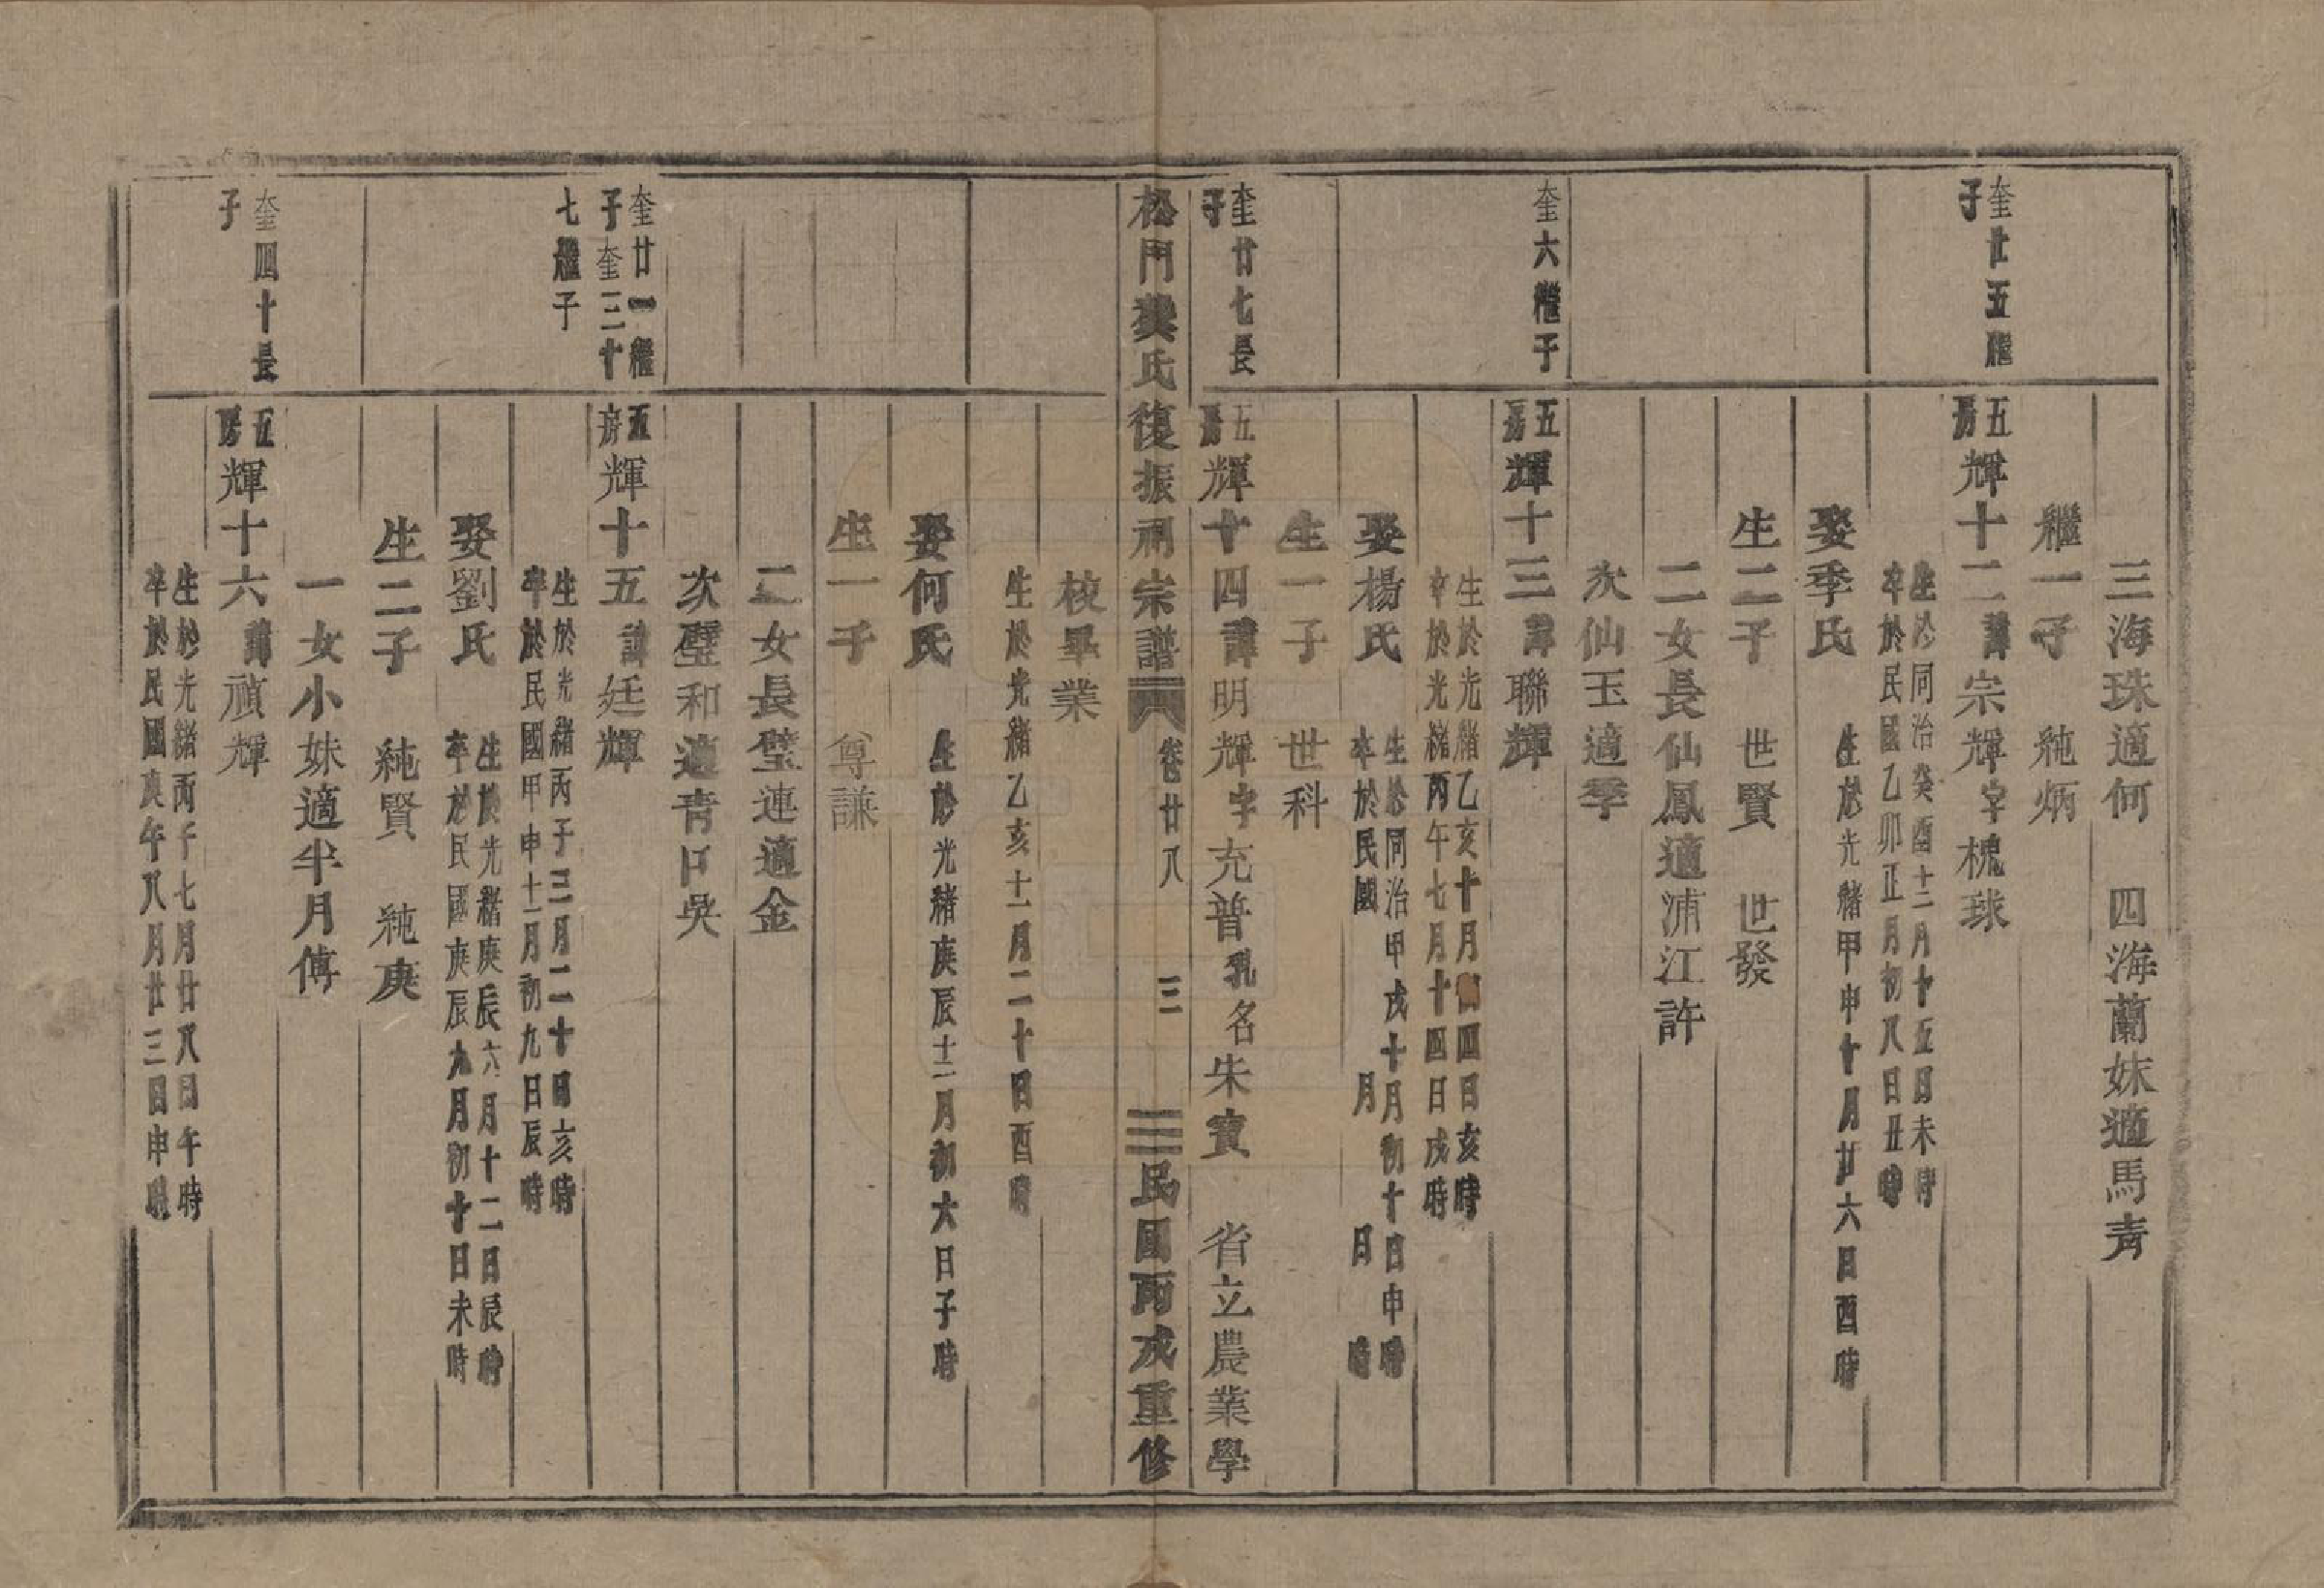 三海珠適何　四海蘭妹適馬青
繼一子　純炳
奎廿五繼子
五房輝十二諱宗輝字槐球
生於同治癸酉十二月十五日未時
卒於民國乙卯正月初八日丑時
娶季氏　生於光緒甲申十月廿六日酉時
生二子　世賢　世發
二女長仙鳳適浦江許
次仙玉適季
奎六繼子
五房輝十三諱聯輝
生於光緒乙亥十月四日亥時
卒於光緒丙午七月十四日戌時
娶楊氏　生於同治甲戌十月初十日申時
卒於民國　月　日　時
生一子　世科
奎廿七長子
五房輝十四諱明輝字充普乳名朱寶　省立農業學
松門龔氏復振祠宗譜　卷廿八　三　民國丙戌重修
校畢業
生於光緒乙亥十一月二十日酉時
娶何氏　生於光緒庚辰十二月初六日子時
生一子　尊謙
二女長璧連適金
次璧和適青口吳
奎廿一繼子奎三十七繼子
五房輝十五諱廷輝
生於光緒丙子三月二十日亥時
卒於民國甲申十一月初九日辰時
娶劉氏　生於光緒庚辰六月十二日辰時
卒於民國庚辰九月初十日未時
生二子　純賢　純庚
一女小妹適半月傅
奎四十長子
五房輝十六諱禎輝
生於光緒丙子七月廿八日午時
卒於民國庚午八月廿三日申時